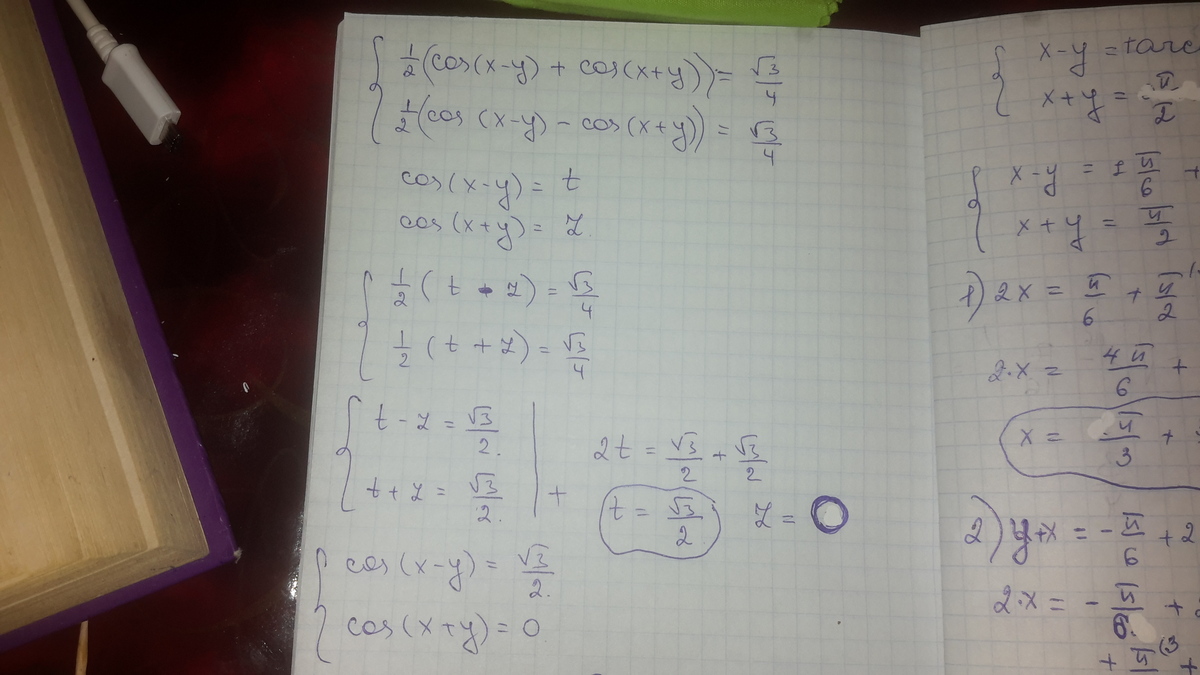 1/2 (cos(x-y) + cos(x+y)) = √3/4
1/2 (cos (x-y) - cos(x+y)) = √3/4
cos(x-y) = t
cos(x+y) = z
1/2 ( t - z ) = √3/4
1/2 ( t + z ) = √3/4
t - z = √3/2.
t + z = √3/2. | +
2t = √3/2 + √3/2
t = √3/2 z = 0
cos(x-y) = √3/2.
cos(x+y) = 0
x-y = ±arc
x+y = π/2
x-y = ± π/6 +
x+y = π/2
1) 2x = π/6 + π/2
2·x = 4π/6 +
x = π/3 +
2) y+x = - π/6 + 2
2·x = - π/6 +
+ π